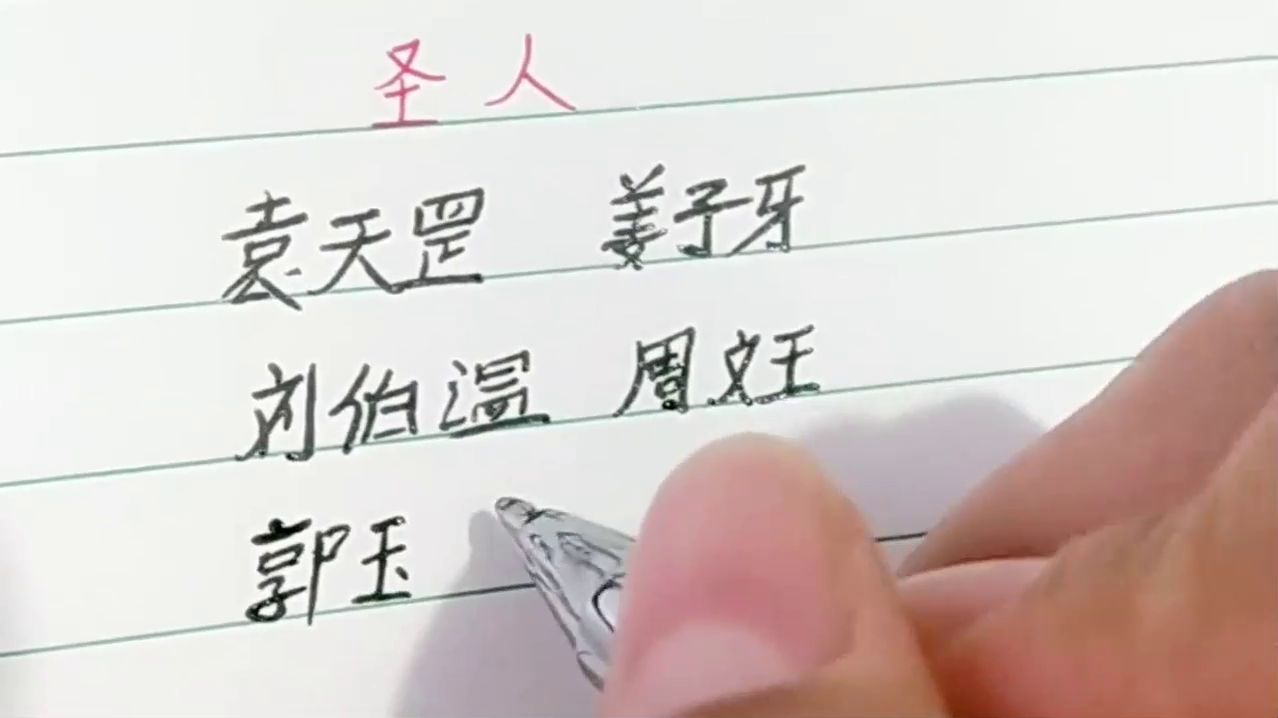 圣人
袁天罡 姜子牙
刘伯温 周文王
郭玉